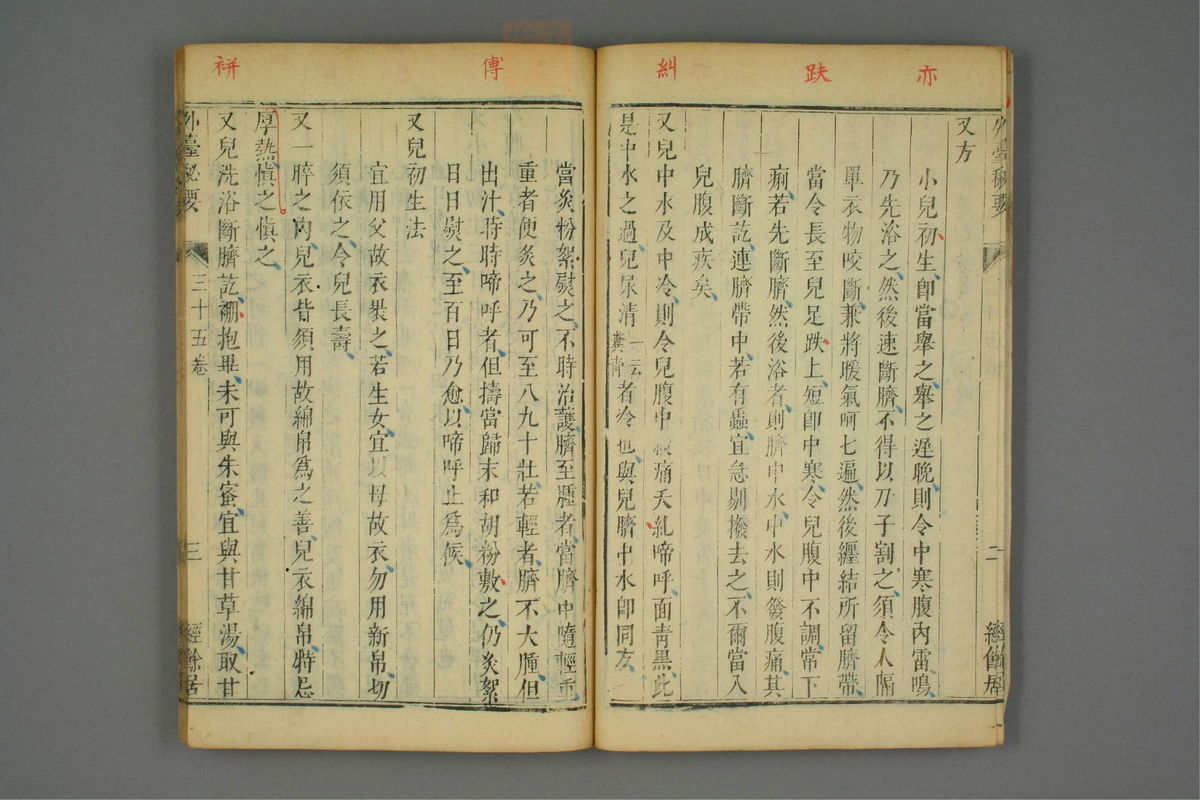 亦
跌
糾
外臺秘要
二
經餘居
又方
小兒初生卽當舉之舉之遲晚則令中寒腹內雷鳴
乃先浴之然後速斷臍不得以刀子割之須令人隔
單衣物咬斷兼將暖氣呵七遍然後纏結所留臍帶
當令長至兒足趺上短卽中寒令兒腹中不調常下
痢若先斷臍然後浴者則臍中水中水則發腹痛其
臍斷訖連臍帶中若有蟲宜急剔撥去之不爾當入
兒腹成疾矣
又兒中水及中冷則令兒腹中痛夭糺啼呼面青黑此
是中水之過兒尿清一云糞青者冷也與兒臍中水卽同方
傅
褓
當炙粉絮熨之不時治護臍至腫者當臍中隨輕重
重者便炙之乃可至八九十壯若輕者臍不大腫但
出汁時時啼呼者但擣當歸末和胡粉敷之仍炙絮
日日熨之至百日乃愈以啼呼止爲候
又兒初生法
宜用父故衣裝之若生女宜以母故衣勿用新帛切
須依之令兒長壽
又一晬之內兒衣皆須用故綿帛爲之善兒衣綿帛特忌
厚熱愼之愼之
又兒洗浴斷臍訖襴抱畢未可與朱蜜宜與甘草湯取甘
外臺秘要
三十五卷
三
經餘居